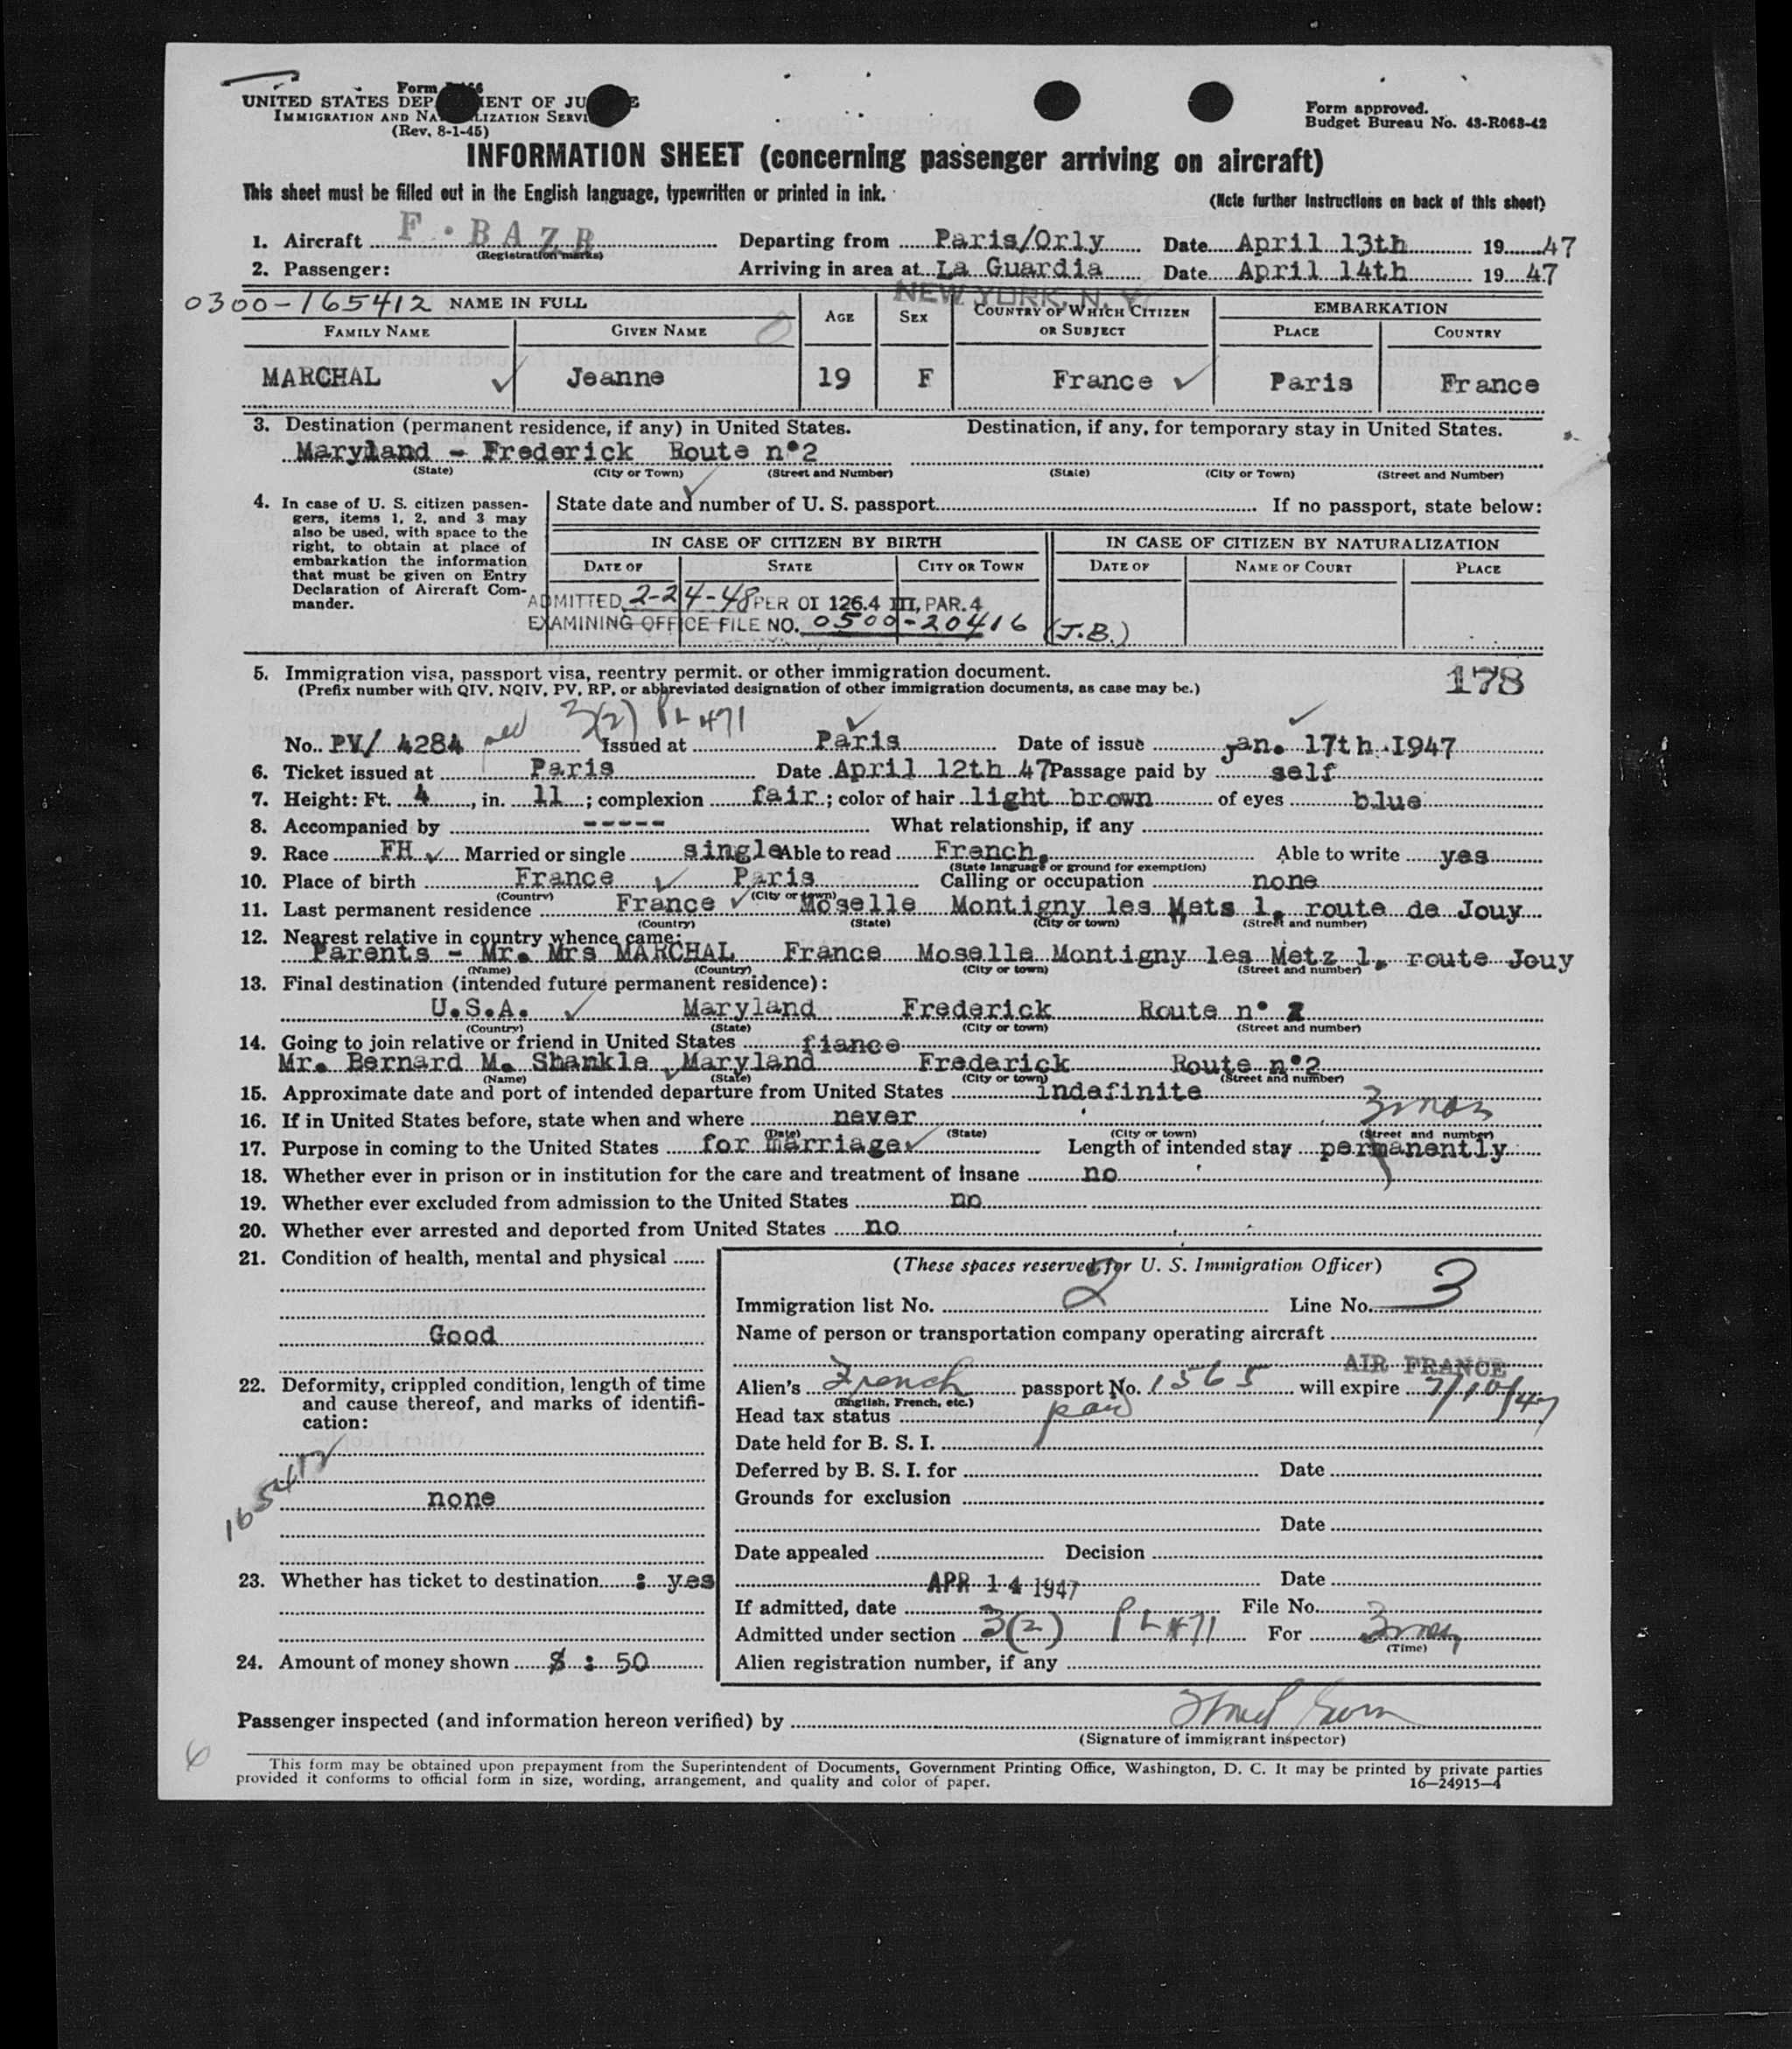 Form
UNITED STATES DEP MENT OF JU E
IMMIGRATION AND NA LIZATION SERVI
(Rev. 8-1-45)
Form approved.
Budget Bureau No. 43-R063-42
INFORMATION SHEET (concerning passenger arriving on aircraft)
This sheet must be filled out in the English language, typewritten or printed in ink.
(Note further instructions on back of this sheet)
1. Aircraft F · BAZB Departing from Paris/Orly Date April 13th 19 47
(Registration marks)
2. Passenger: Arriving in area at La Guardia Date April 14th 19 47
NEW YORK, N. Y.
0300-165412 NAME IN FULL AGE SEX COUNTRY OF WHICH CITIZEN OR SUBJECT EMBARKATION
FAMILY NAME GIVEN NAME PLACE COUNTRY
MARCHAL Jeanne 19 F France Paris France
3. Destination (permanent residence, if any) in United States. Destination, if any, for temporary stay in United States.
Maryland - Frederick Route n°2
(State) (City or Town) (Street and Number) (State) (City or Town) (Street and Number)
4. In case of U. S. citizen passengers, items 1, 2, and 3 may also be used, with space to the right, to obtain at place of embarkation the information that must be given on Entry Declaration of Aircraft Commander.
State date and number of U. S. passport If no passport, state below:
IN CASE OF CITIZEN BY BIRTH IN CASE OF CITIZEN BY NATURALIZATION
DATE OF STATE CITY OR TOWN DATE OF NAME OF COURT PLACE
ADMITTED 2-24-48 PER OI 126.4 III, PAR. 4
EXAMINING OFFICE FILE NO. 0500-20416 (J.B.)
5. Immigration visa, passport visa, reentry permit, or other immigration document.
(Prefix number with QIV, NQIV, PV, RP, or abbreviated designation of other immigration documents, as case may be.)
178
3(2) PL 471
No. PV/ 4284 Issued at Paris Date of issue Jan. 17th 1947
6. Ticket issued at Paris Date April 12th 47 Passage paid by self
7. Height: Ft. 4, in. 11; complexion fair; color of hair light brown of eyes blue
8. Accompanied by ----- What relationship, if any
9. Race FH Married or single single Able to read French. Able to write yes
(State language or ground for exemption)
10. Place of birth France Paris Calling or occupation none
(Country) (City or town)
11. Last permanent residence France Moselle Montigny les Mets 1, route de Jouy
(Country) (State) (City or town) (Street and number)
12. Nearest relative in country whence came:
Parents - Mr. Mrs MARCHAL France Moselle Montigny les Metz 1, route Jouy
(Name) (Country) (City or town) (Street and number)
13. Final destination (intended future permanent residence):
U.S.A. Maryland Frederick Route n° 2
(Country) (State) (City or town) (Street and number)
14. Going to join relative or friend in United States fiance
Mr. Bernard M. Shankle Maryland Frederick Route n°2
(Name) (State) (City or town) (Street and number)
15. Approximate date and port of intended departure from United States indefinite
16. If in United States before, state when and where never 3 mos
(Date) (State) (City or town) (Street and number)
17. Purpose in coming to the United States for marriage Length of intended stay permanently
18. Whether ever in prison or in institution for the care and treatment of insane no
19. Whether ever excluded from admission to the United States no
20. Whether ever arrested and deported from United States no
21. Condition of health, mental and physical
Good
22. Deformity, crippled condition, length of time and cause thereof, and marks of identification:
165412
none
23. Whether has ticket to destination : yes
24. Amount of money shown $ : 50
(These spaces reserved for U. S. Immigration Officer)
Immigration list No. 2 Line No. 3
Name of person or transportation company operating aircraft
AIR FRANCE
Alien's French passport No. 1565 will expire 7/10/47
(English, French, etc.)
Head tax status paid
Date held for B. S. I.
Deferred by B. S. I. for Date
Grounds for exclusion
Date
Date appealed Decision
Date
APR 14 1947
If admitted, date File No.
Admitted under section 3(2) PL 471 For 3 mos
(Time)
Alien registration number, if any
Passenger inspected (and information hereon verified) by
(Signature of immigrant inspector)
6
This form may be obtained upon prepayment from the Superintendent of Documents, Government Printing Office, Washington, D. C. It may be printed by private parties
provided it conforms to official form in size, wording, arrangement, and quality and color of paper. 16—24915-4